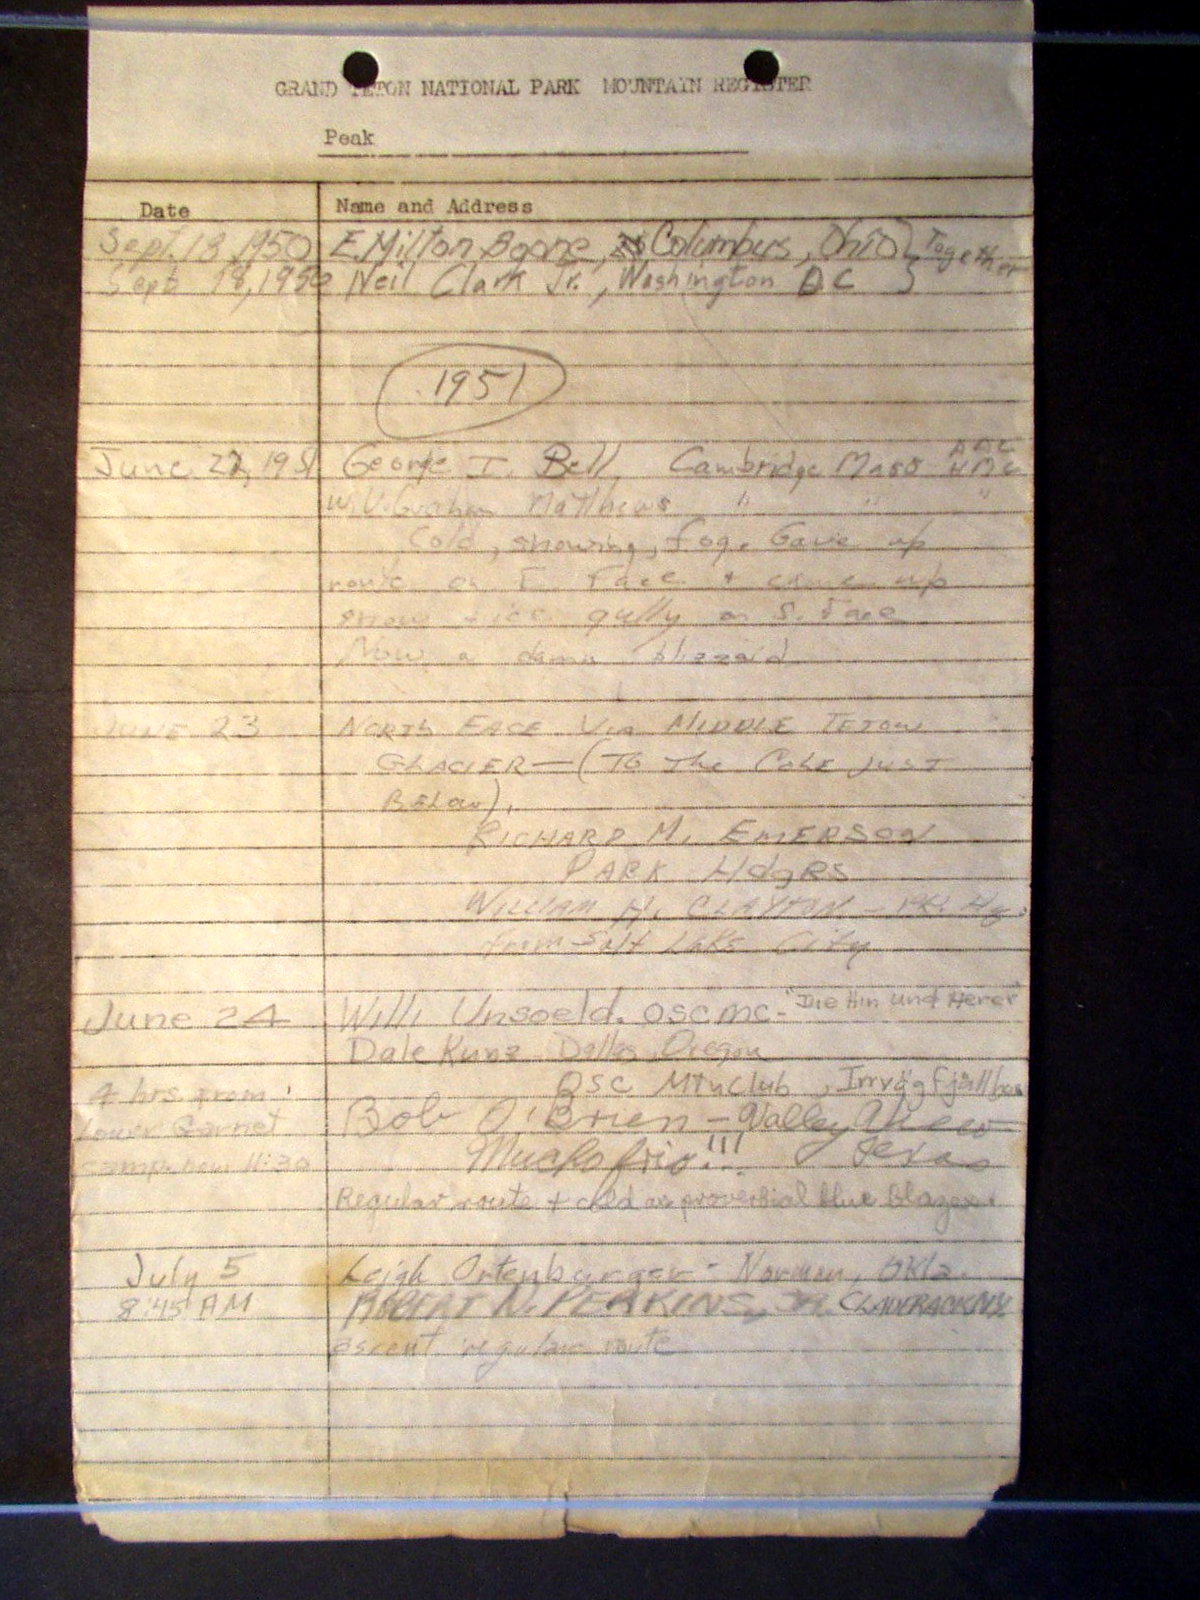 GRAND TETON NATIONAL PARK MOUNTAIN REGISTER
Peak
Date Name and Address
Sept. 18, 1950 E. Milton Boone, Columbus, Ohio } Together
Sept 18, 1950 Neil Clark Jr., Washington DC }
1951
June 22, 1951 George I. Bell, Cambridge Mass AAC HMC
W.V. Graham Matthews " " "
Cold, snowing, fog. Gave up
route on E Face + came up
snow + ice gully on S. Face
Now a damn blizzard
JUNE 23 NORTH FACE VIA MIDDLE TETON
GLACIER — (TO THE COLE JUST
BELOW).
RICHARD M. EMERSON
PARK HdqRS
WILLIAM H. CLAYTON - PK. Hq.
from Salt Lake City
June 24 Willi Unsoeld. OSCMC - "Die Hin und Herer"
Dale Kunz Dallas, Oregon
4 hrs. from OSC MtnClub,
Lower Garnet Bob O'Brien - Valley View
camp. now 11:30 Mucho frio!!! Texas
Regular route + cold as proverbial blue blazes.
July 5 Leigh Ortenburger - Norman, Okla.
8:45 AM ROBERT N. PERKINS, JR. CLAVERACK NY
ascent regular route